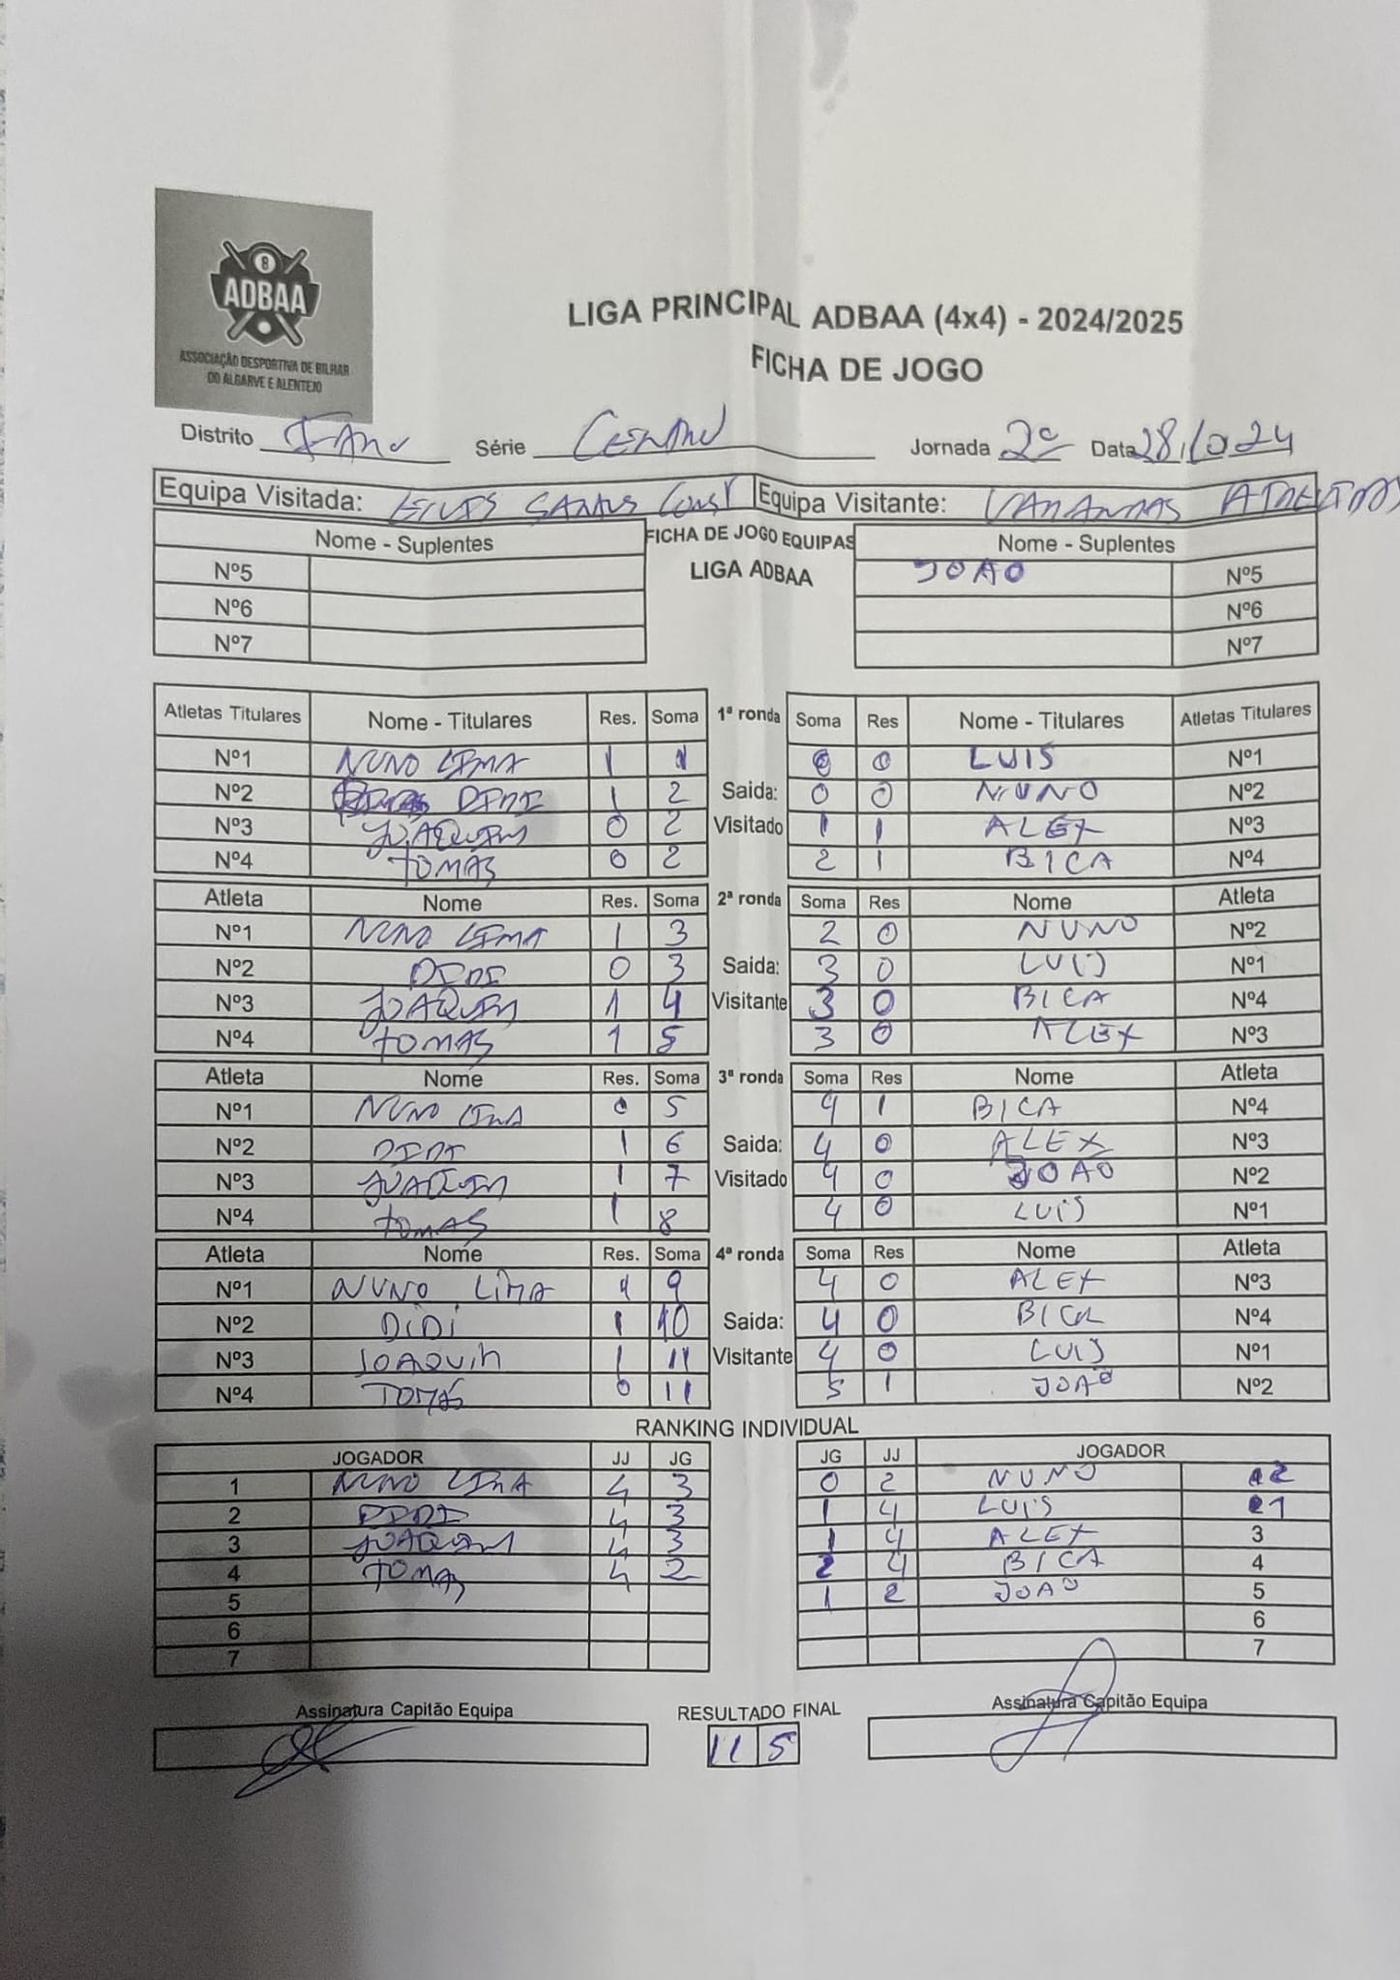 8
ADBAA
ASSOCIAÇÃO DESPORTIVA DE BILHAR
DO ALGARVE E ALENTEJO
LIGA PRINCIPAL ADBAA (4x4) - 2024/2025
FICHA DE JOGO
Distrito Série Jornada 2ª Data 28/10/24
Equipa Visitada: SANTOS CONST Equipa Visitante: VARANDAS
Nome - Suplentes FICHA DE JOGO EQUIPAS Nome - Suplentes
Nº5 LIGA ADBAA JOAO Nº5
Nº6 Nº6
Nº7 Nº7
Atletas Titulares Nome - Titulares Res. Soma 1ª ronda Soma Res Nome - Titulares Atletas Titulares
Nº1 NUNO LIMA 1 1 0 0 LUIS Nº1
Nº2 DIDI 1 2 Saida: 0 0 NUNO Nº2
Nº3 JOAQUIM 0 2 Visitado 1 1 ALEX Nº3
Nº4 TOMAS 0 2 2 1 BICA Nº4
Atleta Nome Res. Soma 2ª ronda Soma Res Nome Atleta
Nº1 NUNO LIMA 1 3 2 0 NUNO Nº2
Nº2 DIDI 0 3 Saida: 3 0 LUIS Nº1
Nº3 JOAQUIM 1 4 Visitante 3 0 BICA Nº4
Nº4 TOMAS 1 5 3 0 ALEX Nº3
Atleta Nome Res. Soma 3ª ronda Soma Res Nome Atleta
Nº1 NUNO LIMA 0 5 4 1 BICA Nº4
Nº2 DIDI 1 6 Saida: 4 0 ALEX Nº3
Nº3 JOAQUIM 1 7 Visitado 4 0 JOAO Nº2
Nº4 TOMAS 1 8 4 0 LUIS Nº1
Atleta Nome Res. Soma 4ª ronda Soma Res Nome Atleta
Nº1 NUNO LIMA 1 9 4 0 ALEX Nº3
Nº2 DIDI 1 10 Saida: 4 0 BICA Nº4
Nº3 JOAQUIM 1 11 Visitante 4 0 LUIS Nº1
Nº4 TOMÁS 0 11 5 1 JOAO Nº2
RANKING INDIVIDUAL
JOGADOR JJ JG JG JJ JOGADOR
1 NUNO LIMA 4 3 0 2 NUNO 2
2 DIDI 4 3 1 4 LUIS 1
3 JOAQUIM 4 3 1 4 ALEX 3
4 TOMAS 4 2 2 4 BICA 4
5 1 2 JOAO 5
6 6
7 7
Assinatura Capitão Equipa RESULTADO FINAL Assinatura Capitão Equipa
11 5